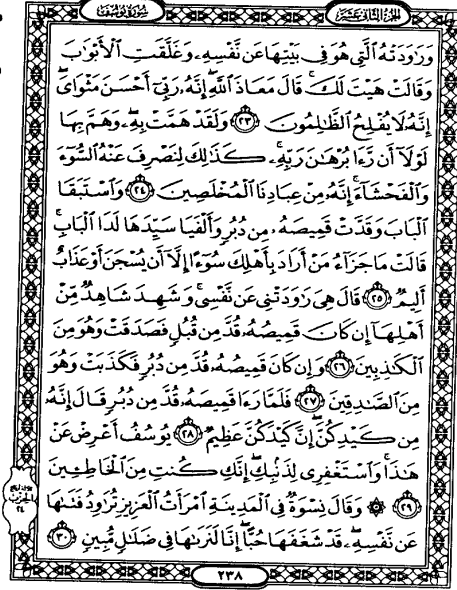 الجزء الثاني عشر
سورة يوسف
وَرَٰوَدَتْهُ ٱلَّتِى هُوَ فِى بَيْتِهَا عَن نَّفْسِهِۦ وَغَلَّقَتِ ٱلْأَبْوَٰبَ
وَقَالَتْ هَيْتَ لَكَ ۚ قَالَ مَعَاذَ ٱللَّهِ ۖ إِنَّهُۥ رَبِّىٓ أَحْسَنَ مَثْوَاىَ ۖ
إِنَّهُۥ لَا يُفْلِحُ ٱلظَّٰلِمُونَ ٢٣ وَلَقَدْ هَمَّتْ بِهِۦ ۖ وَهَمَّ بِهَا
لَوْلَآ أَن رَّءَا بُرْهَٰنَ رَبِّهِۦ ۚ كَذَٰلِكَ لِنَصْرِفَ عَنْهُ ٱلسُّوٓءَ
وَٱلْفَحْشَآءَ ۚ إِنَّهُۥ مِنْ عِبَادِنَا ٱلْمُخْلَصِينَ ٢٤ وَٱسْتَبَقَا
ٱلْبَابَ وَقَدَّتْ قَمِيصَهُۥ مِن دُبُرٍ وَأَلْفَيَا سَيِّدَهَا لَدَا ٱلْبَابِ ۚ
قَالَتْ مَا جَزَآءُ مَنْ أَرَادَ بِأَهْلِكَ سُوٓءًا إِلَّآ أَن يُسْجَنَ أَوْ عَذَابٌ
أَلِيمٌ ٢٥ قَالَ هِىَ رَٰوَدَتْنِى عَن نَّفْسِى ۚ وَشَهِدَ شَاهِدٌ مِّنْ
أَهْلِهَآ إِن كَانَ قَمِيصُهُۥ قُدَّ مِن قُبُلٍ فَصَدَقَتْ وَهُوَ مِنَ
ٱلْكَٰذِبِينَ ٢٦ وَإِن كَانَ قَمِيصُهُۥ قُدَّ مِن دُبُرٍ فَكَذَبَتْ وَهُوَ
مِنَ ٱلصَّٰدِقِينَ ٢٧ فَلَمَّا رَءَا قَمِيصَهُۥ قُدَّ مِن دُبُرٍ قَالَ إِنَّهُۥ
مِن كَيْدِكُنَّ ۖ إِنَّ كَيْدَكُنَّ عَظِيمٌ ٢٨ يُوسُفُ أَعْرِضْ عَنْ
هَٰذَا ۚ وَٱسْتَغْفِرِى لِذَنۢبِكِ ۖ إِنَّكِ كُنتِ مِنَ ٱلْخَاطِـِٔينَ
٢٩ ۞ وَقَالَ نِسْوَةٌ فِى ٱلْمَدِينَةِ ٱمْرَأَتُ ٱلْعَزِيزِ تُرَٰوِدُ فَتَىٰهَا
عَن نَّفْسِهِۦ ۖ قَدْ شَغَفَهَا حُبًّا ۖ إِنَّا لَنَرَىٰهَا فِى ضَلَٰلٍ مُّبِينٍ ٣٠
٢٣٨
الحزب
٢٤